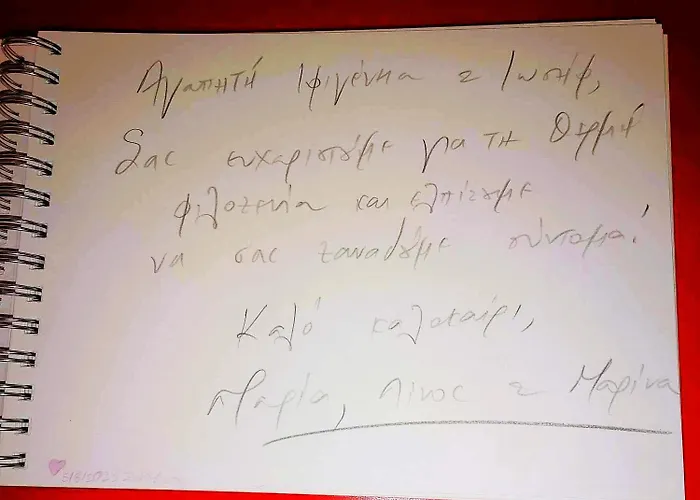 Αγαπητή Ιφιγένεια & Ιωσήφ,
Σας ευχαριστούμε για τη θερμή
φιλοξενία και ελπίζουμε
να σας ξαναδούμε σύντομα!
Καλό καλοκαίρι,
Μαρία, Λίνος & Μαρίνα